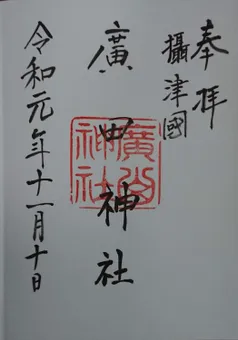 奉拝
攝津國
廣田神社
廣田神社
令和元年十一月十日